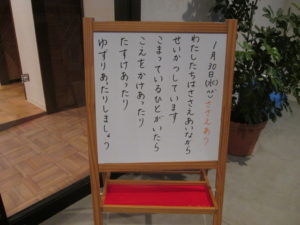 1月30日(水)ささえあう
わたしたちはささえあいながら
せいかつしています
こまっているひとがいたら
こえをかけあったり
たすけあったり
ゆずりあったりしましょう